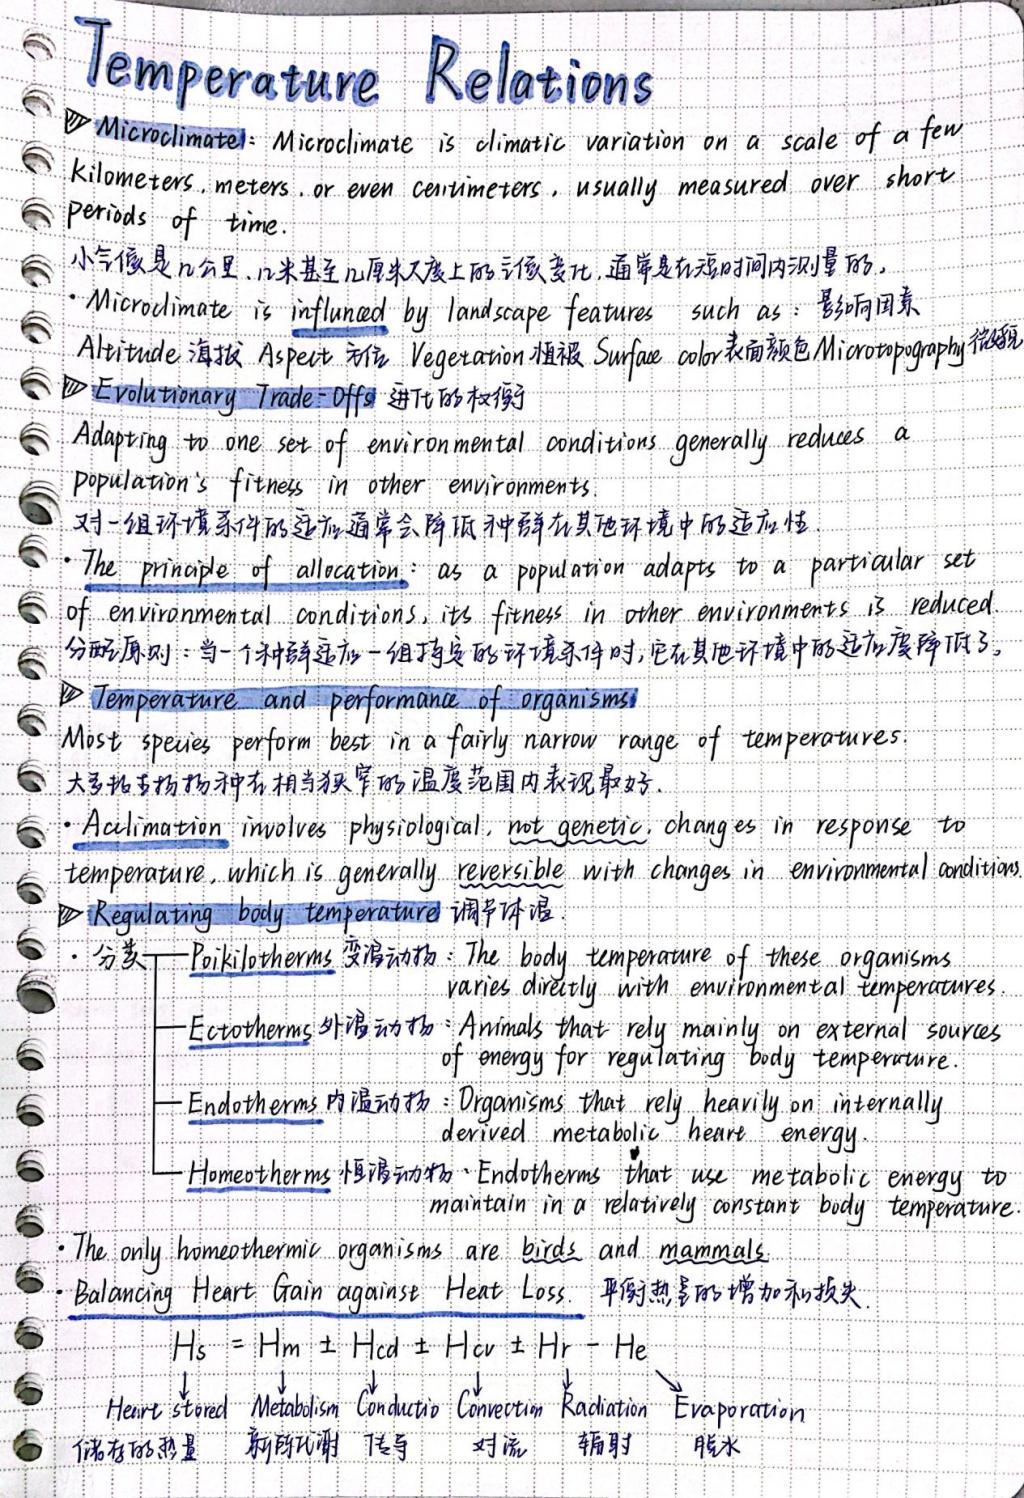 Temperature Relations
Microclimate: Microclimate is climatic variation on a scale of a few
kilometers, meters, or even centimeters, usually measured over short
periods of time.
小气候是几公里、几米甚至几厘米尺度上的气候变化,通常是在短时间内测量的。
· Microclimate is influnced by landscape features such as: 影响因素
Altitude 海拔 Aspect 方位 Vegetation 植被 Surface color 表面颜色 Microtopography
Evolutionary Trade-Offs 进化的权衡
Adapting to one set of environmental conditions generally reduces a
population's fitness in other environments.
对一组环境条件的适应通常会降低种群在其他环境中的适应性.
· The principle of allocation: as a population adapts to a particular set
of environmental conditions, its fitness in other environments is reduced.
分配原则:当一个种群适应一组特定的环境条件时,它在其他环境中的适应度降低了。
Temperature and performance of organisms
Most species perform best in a fairly narrow range of temperatures.
物种在相当狭窄的温度范围内表现最好.
· Acclimation involves physiological, not genetic, changes in response to
temperature, which is generally reversible with changes in environmental conditions.
Regulating body temperature 调节体温.
· 分类 Poikilotherms 变温动物: The body temperature of these organisms
varies directly with environmental temperatures.
Ectotherms 外温动物: Animals that rely mainly on external sources
of energy for regulating body temperature.
Endotherms 内温动物: Organisms that rely heavily on internally
derived metabolic heart energy.
Homeotherms 恒温动物· Endotherms that use metabolic energy to
maintain in a relatively constant body temperature.
· The only homeothermic organisms are birds and mammals
· Balancing Heart Gain against Heat Loss. 平衡热量的增加和损失.
Hs = Hm ± Hcd ± Hcv ± Hr - He
Heart stored Metabolism Conductio Convection Radiation Evaporation
储存的热量 新陈代谢 传导 对流 辐射 脱水